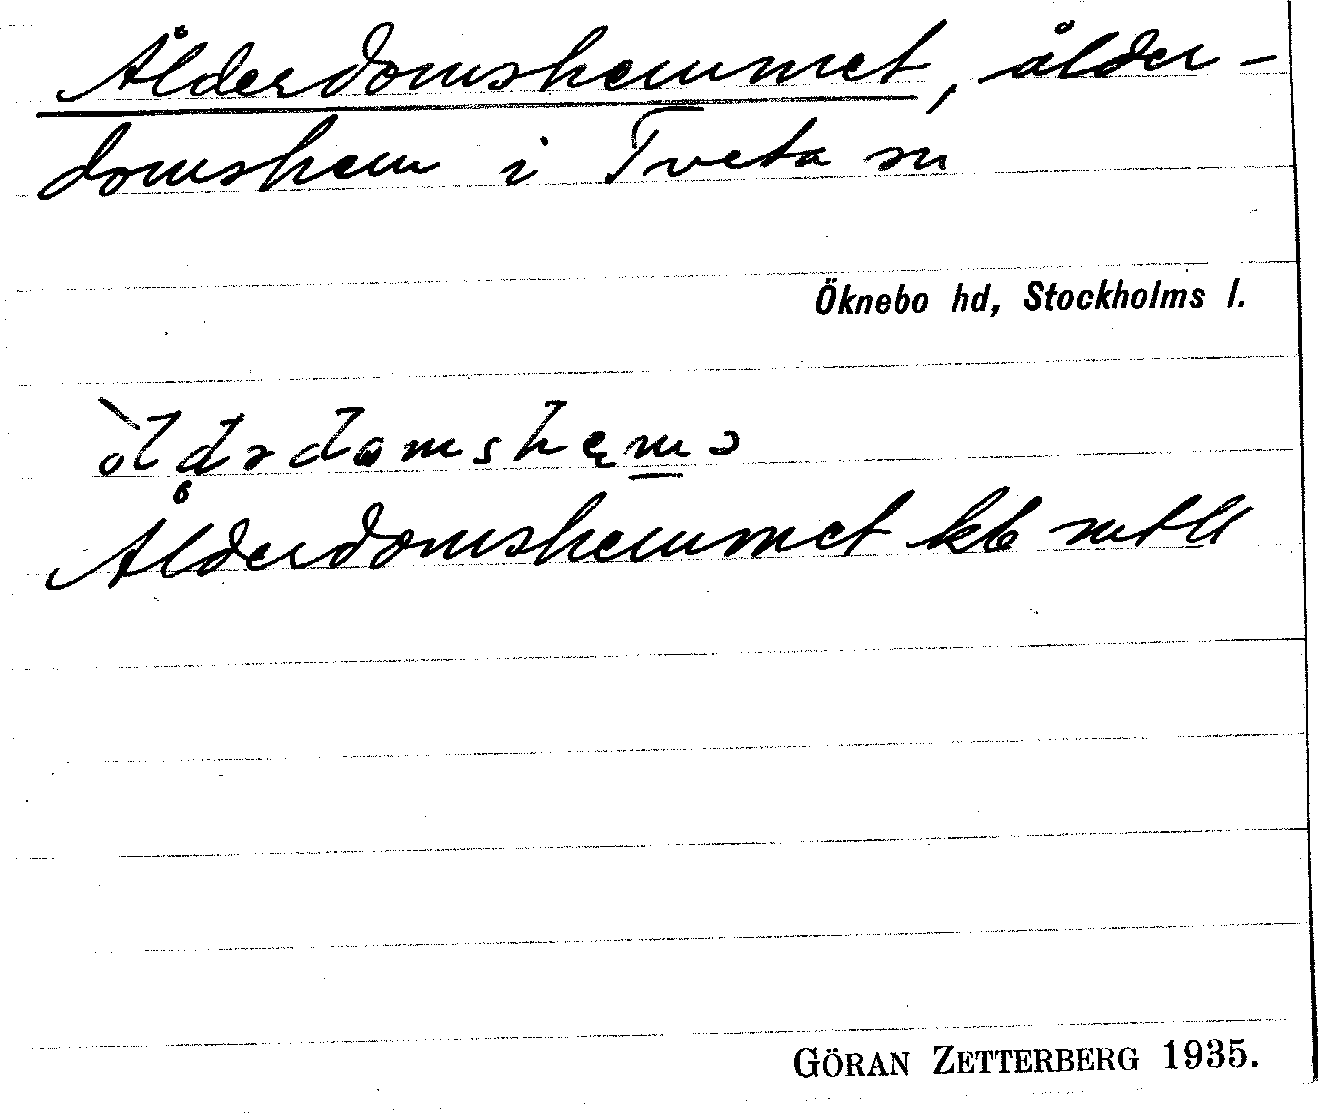 Ålderdomshemmet, ålder-
domshem i Tveta sn
Öknebo hd, Stockholms l.
Ålderdomshemmet kb
GÖRAN ZETTERBERG 1935.